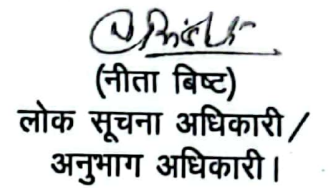 (नीता बिष्ट)
लोक सूचना अधिकारी /
अनुभाग अधिकारी।